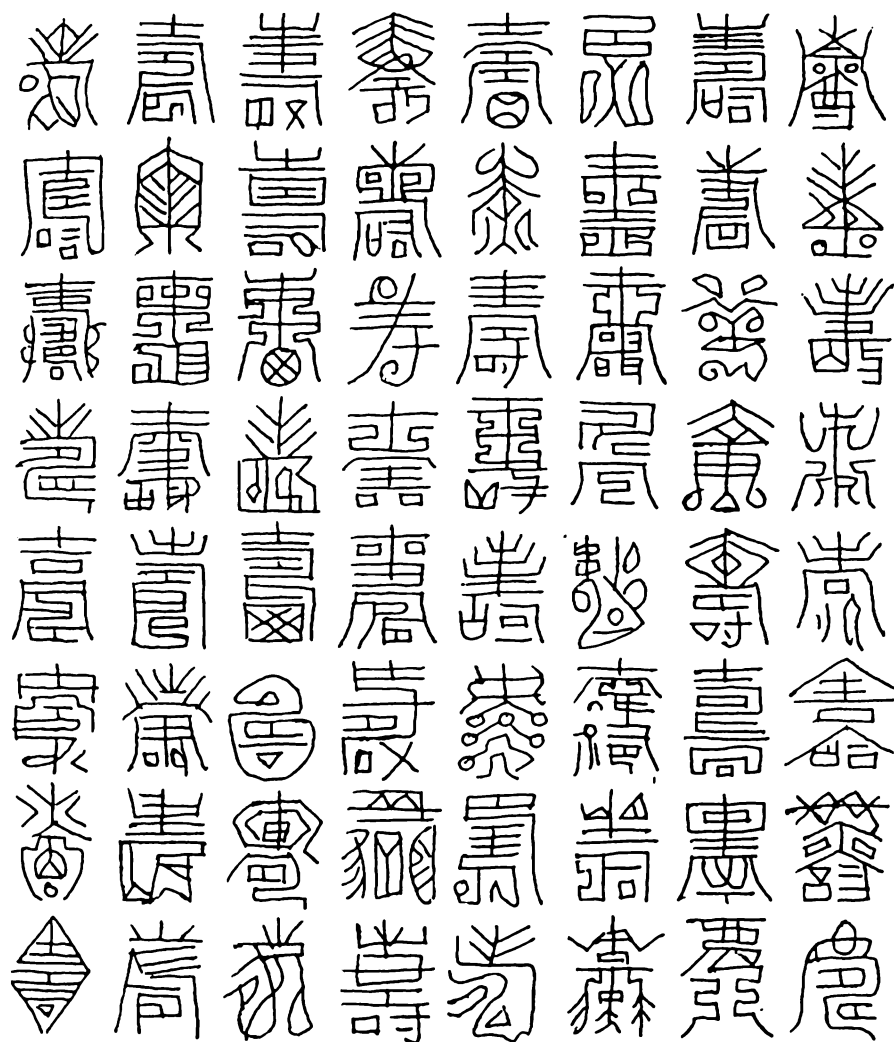 壽壽壽壽壽壽壽壽
壽壽壽壽壽壽壽壽
壽壽壽寿壽壽壽壽
壽壽壽壽壽壽壽壽
壽壽壽壽壽壽壽壽
壽壽壽壽壽壽壽壽
壽壽壽壽壽壽壽壽
壽壽壽壽壽壽壽壽